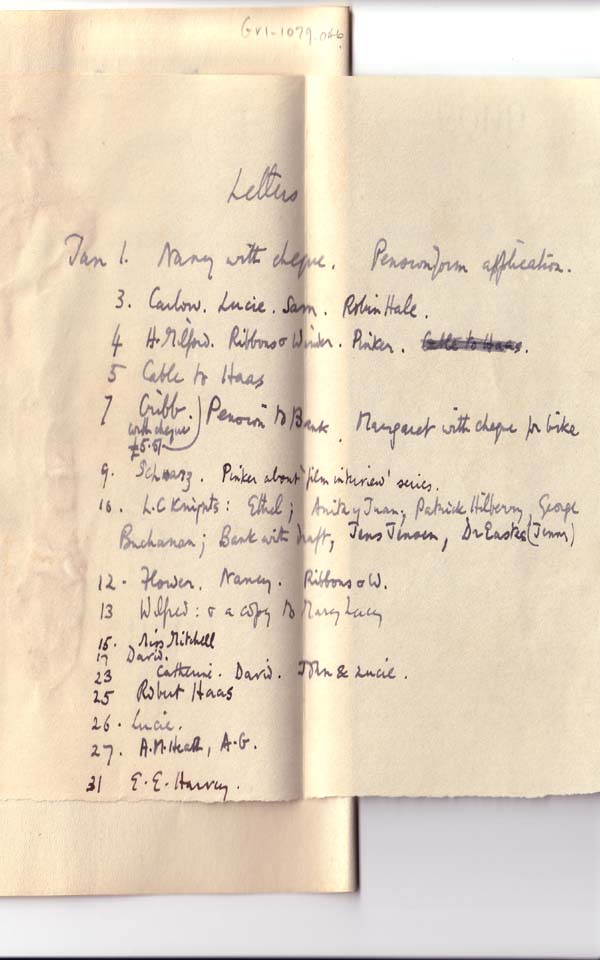 GV1-1079.046
Letters
Jan 1. Nancy with cheque. Pension form application.
3. Carlow. Lucie. Sam. Robin Hale.
4 H. Milford. Ribbons & Winder. Pinker. Cable to Haas.
5 Cable to Haas
7 Cribb. with cheque £5.5/- ) Pension to Bank. Margaret with cheque for bike
9. Schwarz. Pinker about 'film interview' series.
10. L.C Knights: Ethel; Anita y Juan; Patrick Hilberry, George
Buchanan; Bank with draft, Jens Jensen, Dr (Jenny)
12. Flower. Nancy. Ribbons & W.
13 Wilfred: & a copy to Mary Lacey
15. Miss Mitchell
17 David.
23 Catherine. David. John & Lucie.
25 Robert Haas
26. Lucie.
27. A.M. Heath, A.G.
31 E.E. Harvey.